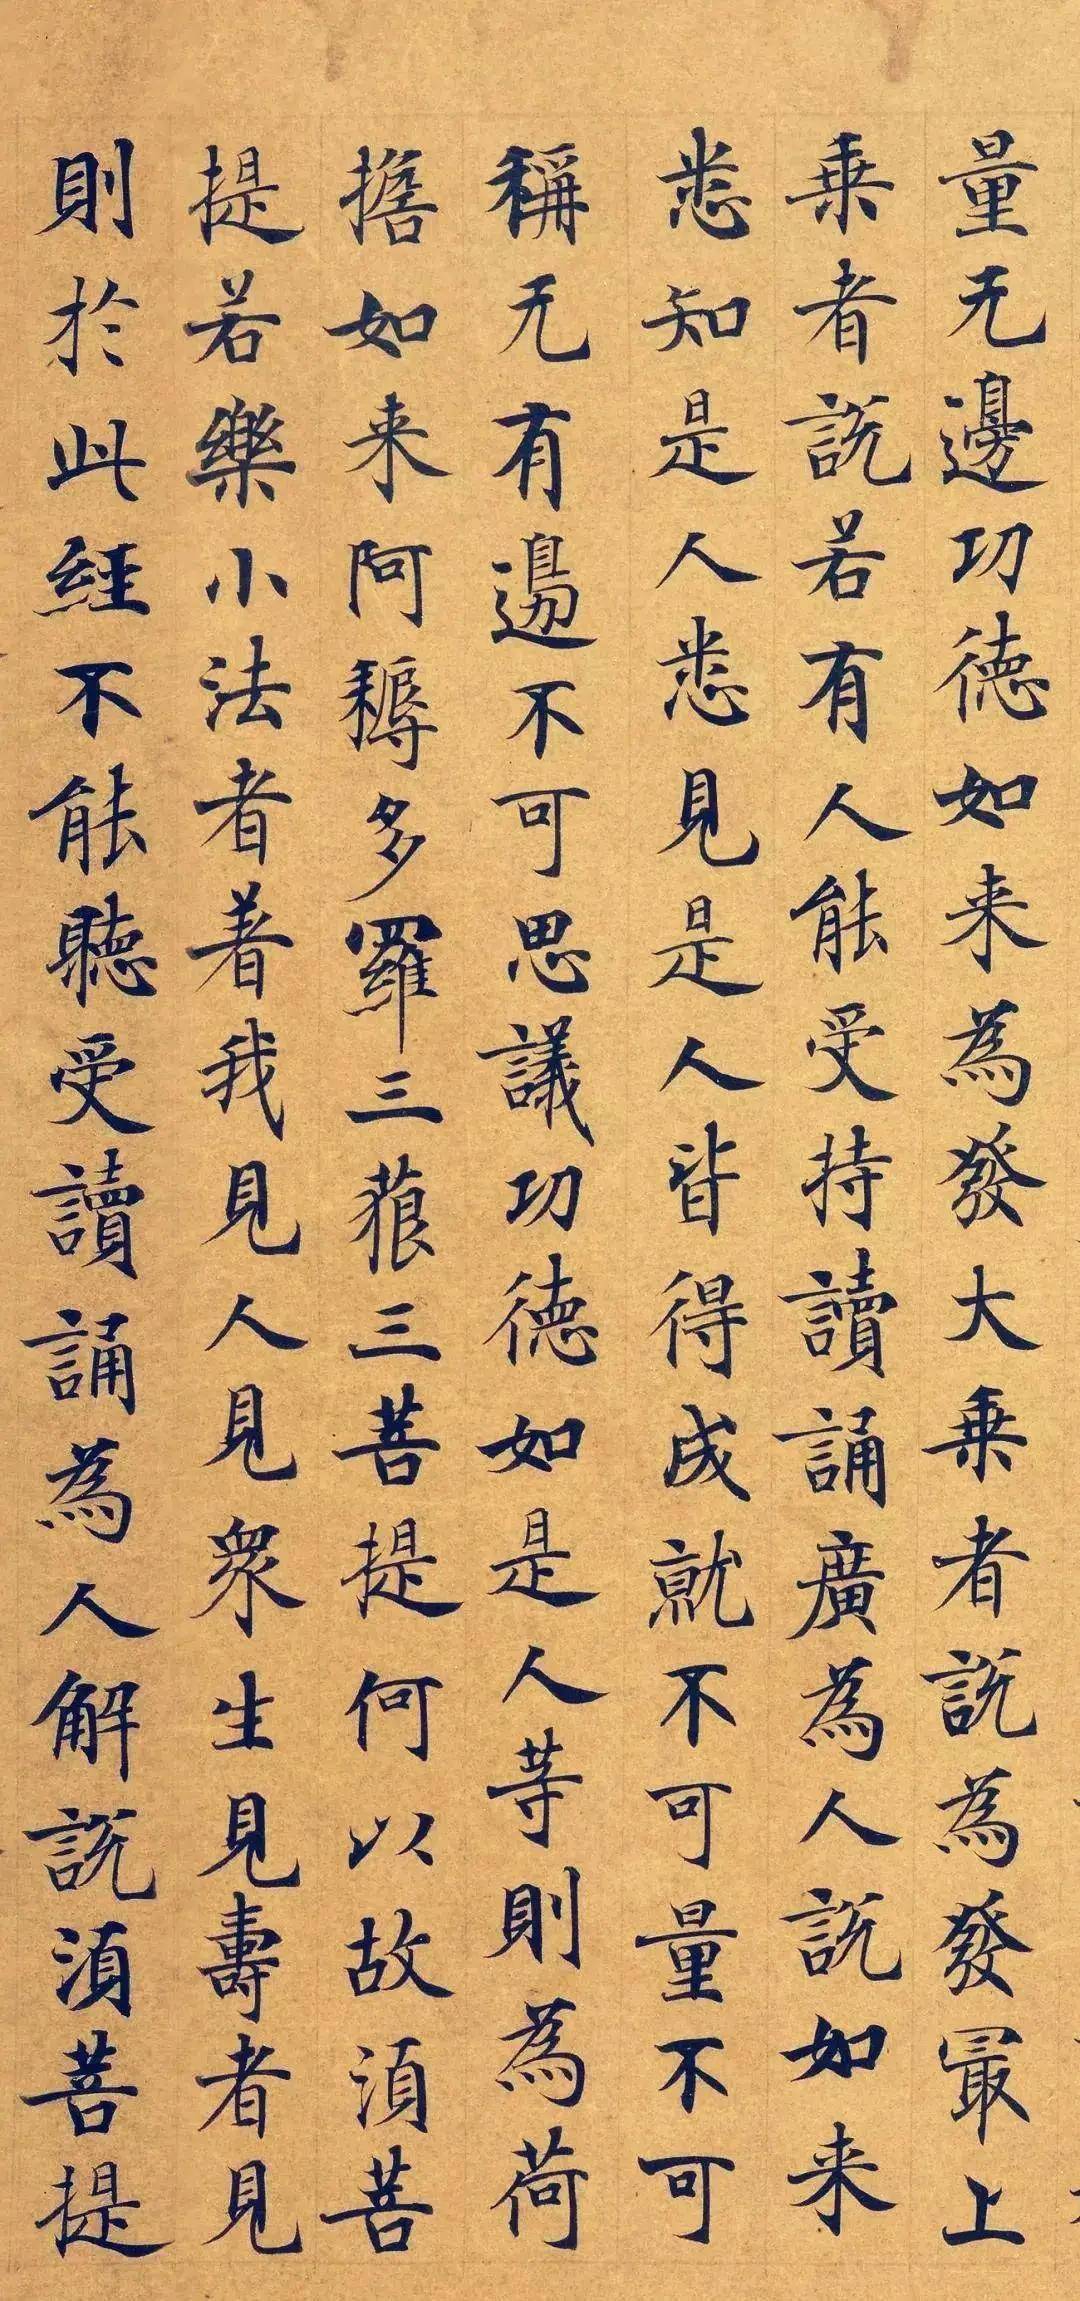 量无邊功德如来為發大乗者説為發冣上
乗者説若有人能受持讀誦廣為人説如来
悉知是人悉見是人皆得成就不可量不可
稱无有邊不可思議功德如是人等則為荷
擔如来阿耨多羅三藐三菩提何以故湏菩
提若樂小法者著我見人見衆生見壽者見
則於此經不能聽受讀誦為人解説湏菩提